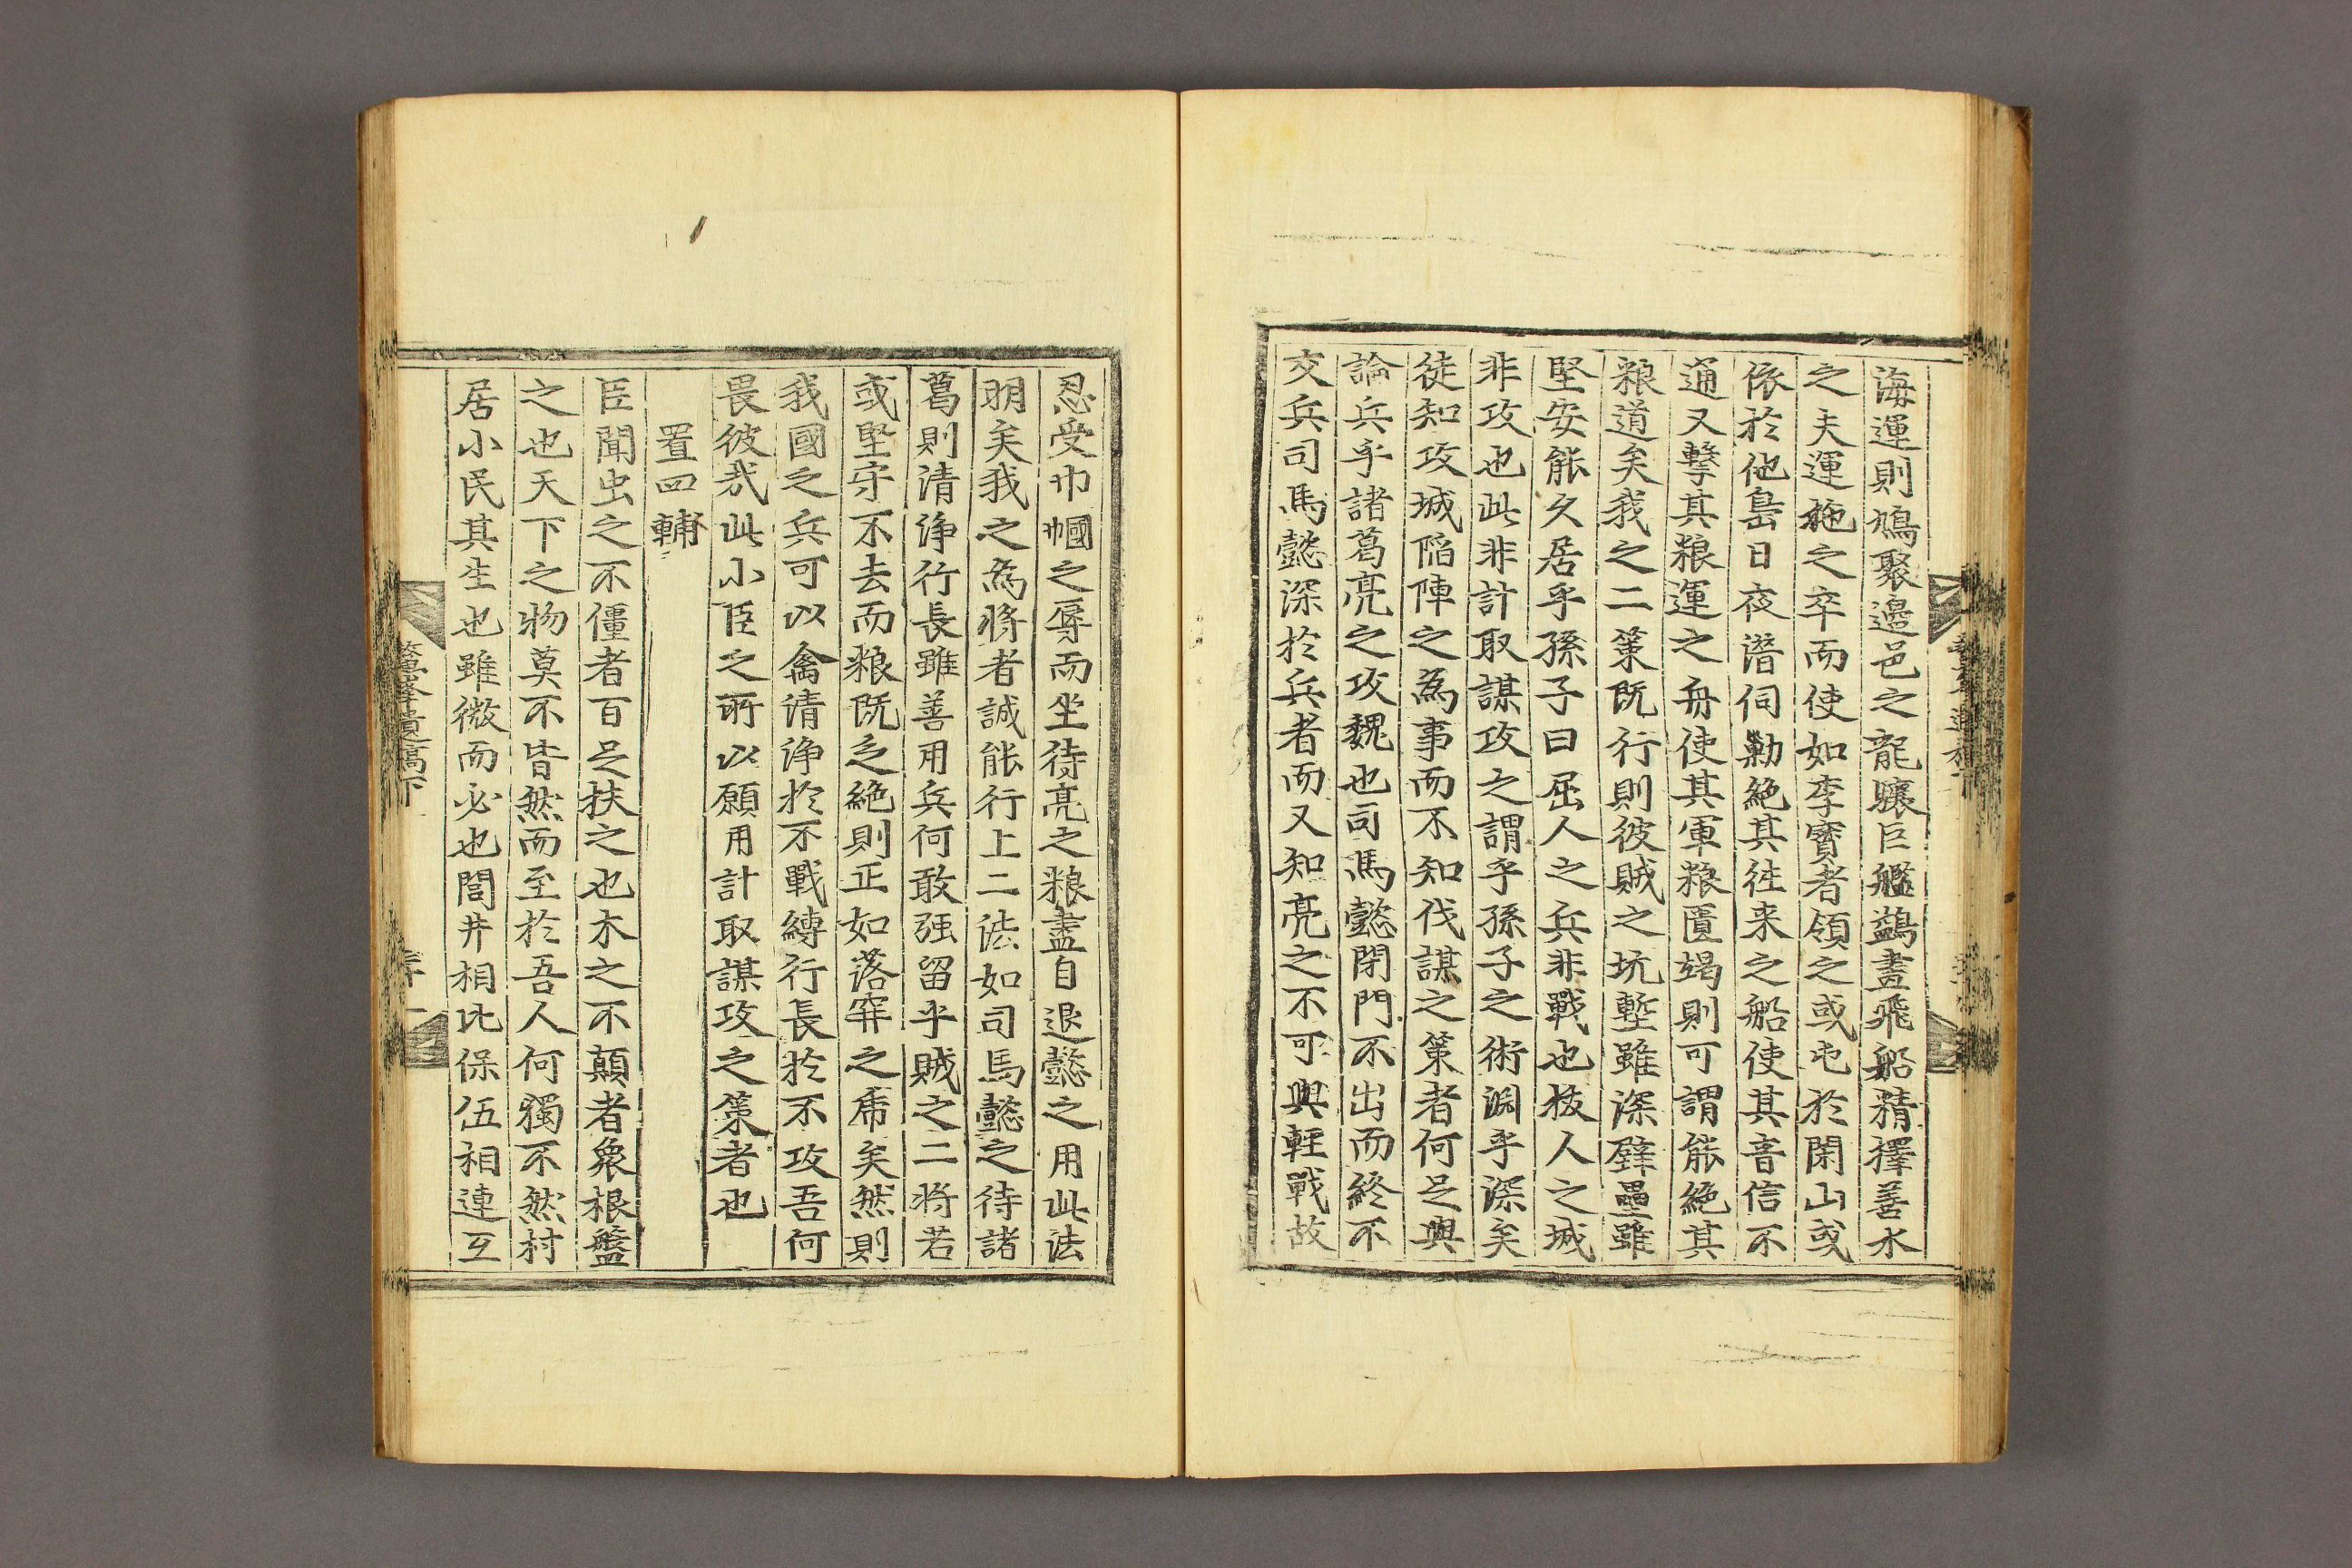 海運則鳩聚邊邑之龍驤巨艦鷁畫飛船精擇善水
之夫運施之卒而使如李寶者領之或屯於閑山或
依於他島日夜潛伺勦絶其徃来之船使其音信不
通又擊其粮運之舟使其軍粮匱竭則可謂能絶其
粮道矣我之二策既行則彼賊之坑塹雖深壁壘雖
堅安能久居乎孫子曰屈人之兵非戰也拔人之城
非攻也此非計取謀攻之謂乎孫子之術淵乎深矣
徒知攻城陷陣之為事而不知伐謀之策者何足與
論兵乎諸葛亮之攻魏也司馬懿閉門不出而終不
交兵司馬懿深於兵者而又知亮之不可與輕戰故
忍受巾幗之辱而坐待亮之粮盡自退懿之用此法
明矣我之為將者誠能行上二法如司馬懿之待諸
葛則清淨行長雖善用兵何敢强留乎賊之二將若
或堅守不去而粮既乏絶則正如落穽之乕矣然則
我國之兵可以禽清淨於不戰縛行長於不攻吾何
畏彼㢤此小臣之所以願用計取謀攻之策者也
置四輔
臣聞虫之不僵者百足扶之也木之不顛者象根盤
之也天下之物莫不皆然而至於吾人何獨不然村
居小民其生也雖微而必也閭井相比保伍相連互
鰲峰遺稿下